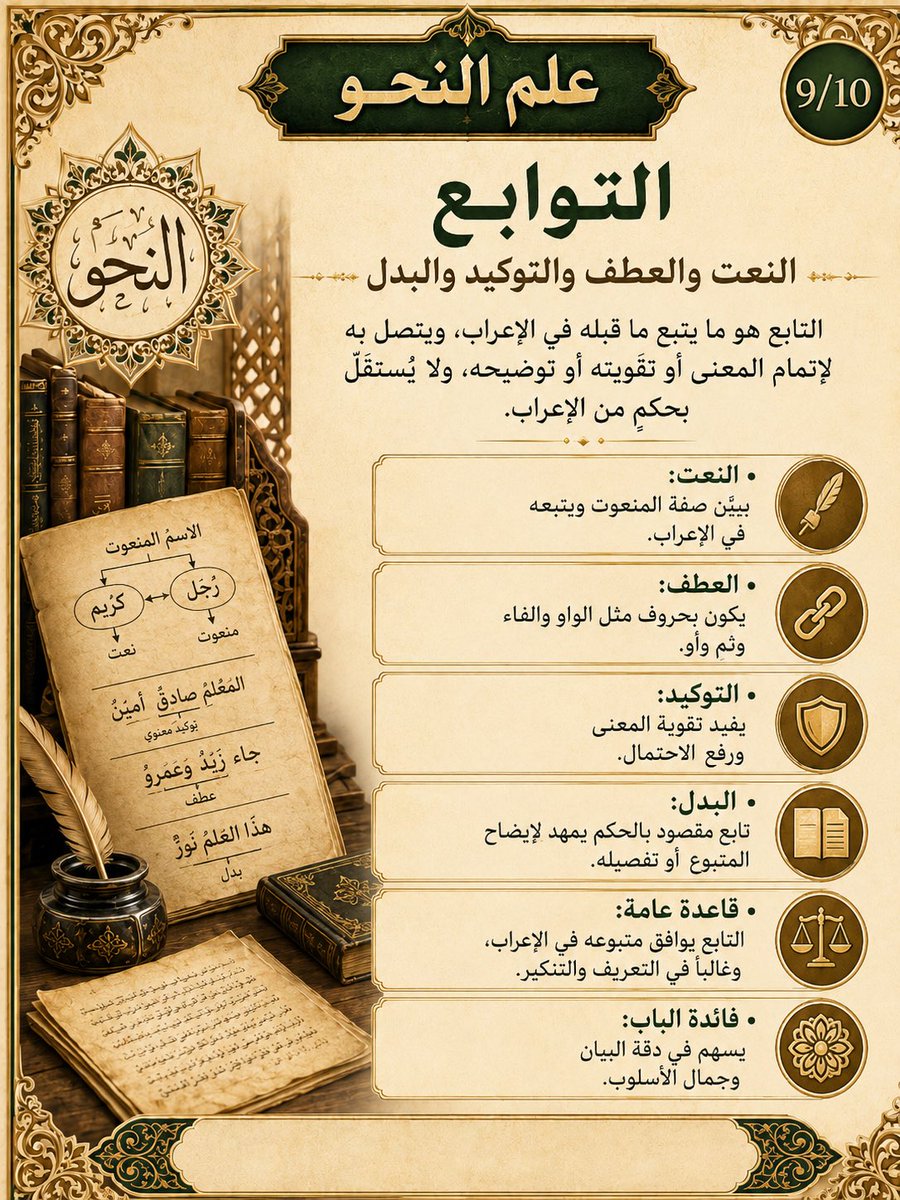 علم النحو
9/10
النحو
التوابع
النعت والعطف والتوكيد والبدل
التابع هو ما يتبع ما قبله في الإعراب، ويتصل به
لإتمام المعنى أو تقَويته أو توضيحه، ولا يُستقَلّ
بحكمٍ من الإعراب.
• النعت:
يبيَّن صفة المنعوت ويتبعه
في الإعراب.
• العطف:
يكون بحروف مثل الواو والفاء
وثم وأو.
• التوكيد:
يفيد تقوية المعنى
ورفع الاحتمال.
• البدل:
تابع مقصود بالحكم يمهد لإيضاح
المتبوع أو تفصيله.
• قاعدة عامة:
التابع يوافق متبوعه في الإعراب،
وغالبأ في التعريف والتنكير.
• فائدة الباب:
يسهم في دقة البيان
وجمال الأسلوب.
الاسمُ المنعوت
رُجَل
كرُيم
منعوت
نعت
المَعُلمُ صادقُ أميَنُ
توكيد معنوي
جاء زَيَدُ وَعَمَروُ
عطف
هذَا العَلمُ نَورٌ
بدل